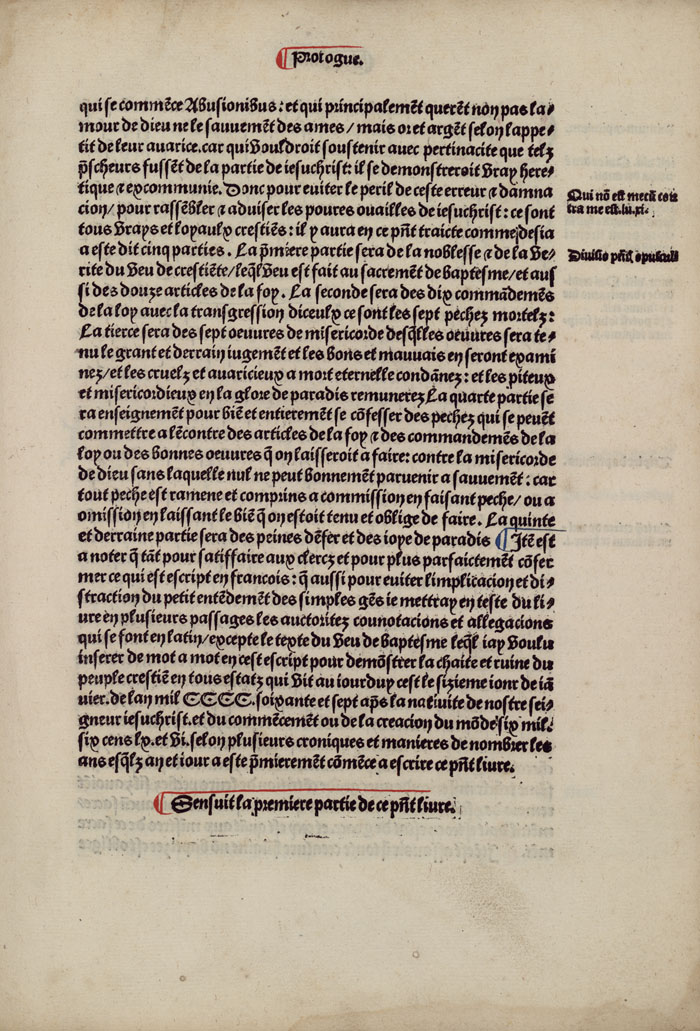 Prologue.
qui se commẽce Abusionibus: et qui principalemẽt querẽt non pas la⸗
mour de dieu ne le sauuement des ames/ mais or et argẽt selon lappe⸗
tit de leur auarice. car qui vouldroit soustenir auec pertinacite que telz
p̃scheurs fussẽt de la partie de iesuchrist: il se demonstreroit vray here⸗
tique ⁊ excommunie. Donc pour euiter le peril de ceste erreur ⁊ damna
cion/ pour rassẽbler ⁊ aduiser les poures ouailles de iesuchrist: ce sont
Qui nõ est mecũ cõ
tra me est. lu. xi.
tous vrays et loyaulx crestiẽs: il y aura en ce pñt traicte comme desia
a este dit cinq parties. La p̃miere partie sera de la noblesse ⁊ de la ve⸗
Diuisio pñtis opusculi
rite du veu de crestiẽte/ leq̃l veu est fait au sacrement de baptesme/ et aus
si des douze articles de la foy. La seconde sera des dix commãdemẽs
de la loy auec la transgression diceulx ce sont les sept pechez mortelz:
La tierce sera des sept oeuures de misericorde desq̃lles oeuures sera te⸗
nu le grant et derrain iugement et les bons et mauuais en seront exami
nez/ et les cruelz et auaricieux a mort eternelle condãnez: et les piteux
et misericordieux en la glore de paradis remunerez La quarte partie se
ra enseignement pour biẽ et entierement se cõfesser des pechez qui se peuẽt
commettre a lẽcontre des articles de la foy ⁊ des commandemẽs de la
loy ou des bonnes oeuures q̃ on laisseroit a faire: contre la misericorde
de dieu sans laquelle nul ne peut bonnement paruenir a sauuemẽt: car
tout peche est ramene et comprins a commission en faisant peche/ ou a
omission en laissant le biẽ q̃ on estoit tenu et oblige de faire. La quinte
et derraine partie sera des peines dẽfer et des ioye de paradis ¶ Jtẽ est
a noter q̃ tãt pour satiffaire aux clercz et pour plus parfaictemẽt cõfer
mer ce qui est escript en francois: q̃ aussi pour euiter limplicacion et di⸗
straction du petit entẽdemẽt des simples gẽs ie mettray en teste du li⸗
ure en plusieurs passages les auctoritez counotacions et allegacions
qui se font en latin/ excepte le texte du veu de baptesme leq̃l iay voulu
inserer de mot a mot en cest escript pour demõstrer la chaite et ruine du
peuple crestiẽ en tous estatz qui vit au iourduy cest le sizieme ionr de iã
uier. de lan mil CCCC. soixante et sept ap̃s la natiuite de nostre sei⸗
gneur iesuchrist. et du commẽcemẽt ou de la creacion du mõde six mil.
six cens lx. et vi. selon plusieurs croniques et manieres de nombrer les
ans esq̃lz an et iour a este p̃mierement cõmẽce a escrire ce pñt liure.
Sensuit la premiere partie de ce pñt liure.